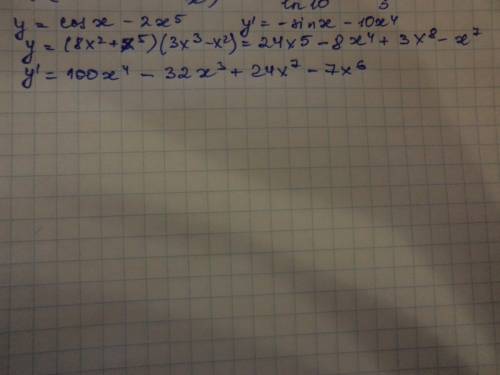 x) ln 10 3
y = cos x - 2x⁵ y' = -sin x - 10x⁴
y = (8x² + x⁵)(3x³ - x²) = 24x5 - 8x⁴ + 3x⁸ - x⁷
y' = 100x⁴ - 32x³ + 24x⁷ - 7x⁶